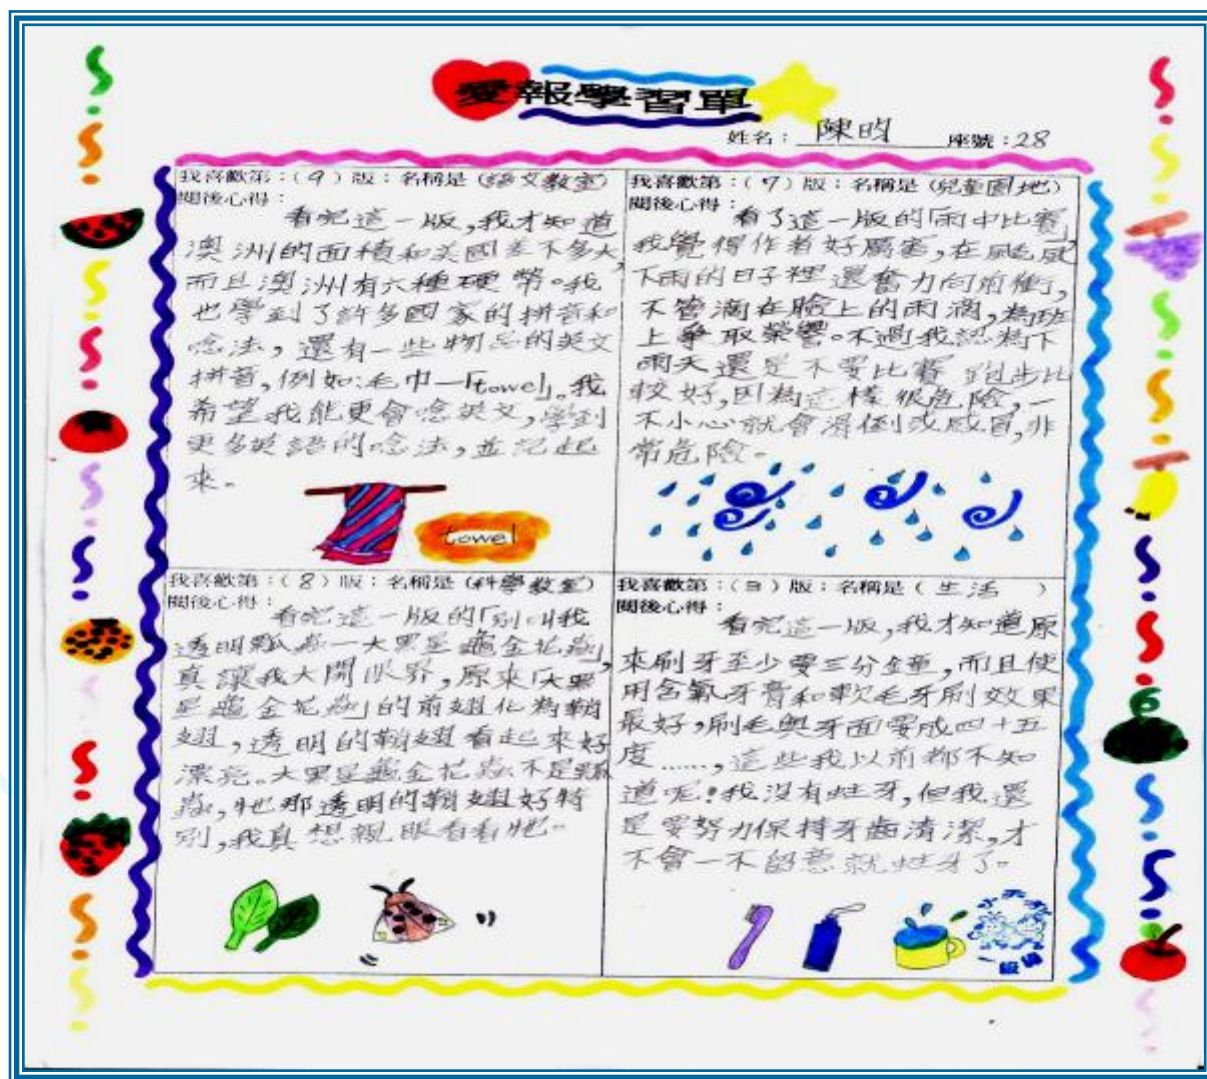 愛報學習單
姓名：陳昀 座號：28
我喜歡第：(9)版：名稱是(語文教室)
閱後心得：
看完這一版,我才知道
澳洲的面積和美國差不多大,
而且澳洲有六種硬幣。我
也學到了許多國家的拼音和
唸法，還有一些物品的英文
拼音,例如:毛巾—「towel」。我
希望我能更會唸英文,學到
更多英語的唸法,並記起
來。
towel
我喜歡第：(7)版：名稱是(兒童園地)
閱後心得：
看了這一版的「雨中比賽」
我覺得作者好厲害,在颳風
下雨的日子裡還奮力向前衝,
不管滴在臉上的雨滴,為班
上爭取榮譽。不過我認為下
雨天還是不要比賽跑步比
較好,因為這樣很危險,一
不小心就會滑倒或感冒,非
常危險。
我喜歡第：(8)版：名稱是(科學教室)
閱後心得：
看完這一版的「別叫我
透明瓢蟲—大黑星龜金花蟲」,
真讓我大開眼界,原來「大黑
星龜金花蟲」的前翅化為鞘
翅,透明的鞘翅看起來好
漂亮。大黑星龜金花蟲不是瓢
蟲,牠那透明的鞘翅好特
別,我真想親眼看看牠。
我喜歡第：(3)版：名稱是(生活)
閱後心得：
看完這一版,我才知道原
來刷牙至少要三分鐘,而且使
用含氟牙膏和軟毛牙刷效果
最好,刷毛與牙面要成四十五
度......,這些我以前都不知
道呢!我沒有蛀牙,但我還
是要努力保持牙齒清潔,才
不會一不留意就蛀牙了。
一級棒